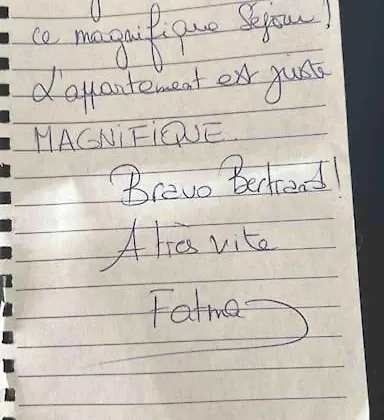 ce magnifique Séjour!
L'appartement est juste
MAGNIFIQUE
Bravo Bertrand!
A très vite
Fatma